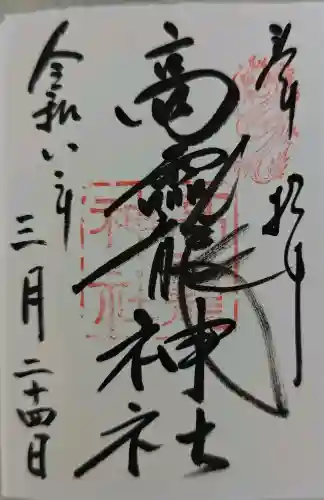 奉拝
高龗神社
令和六年
三月二十四日